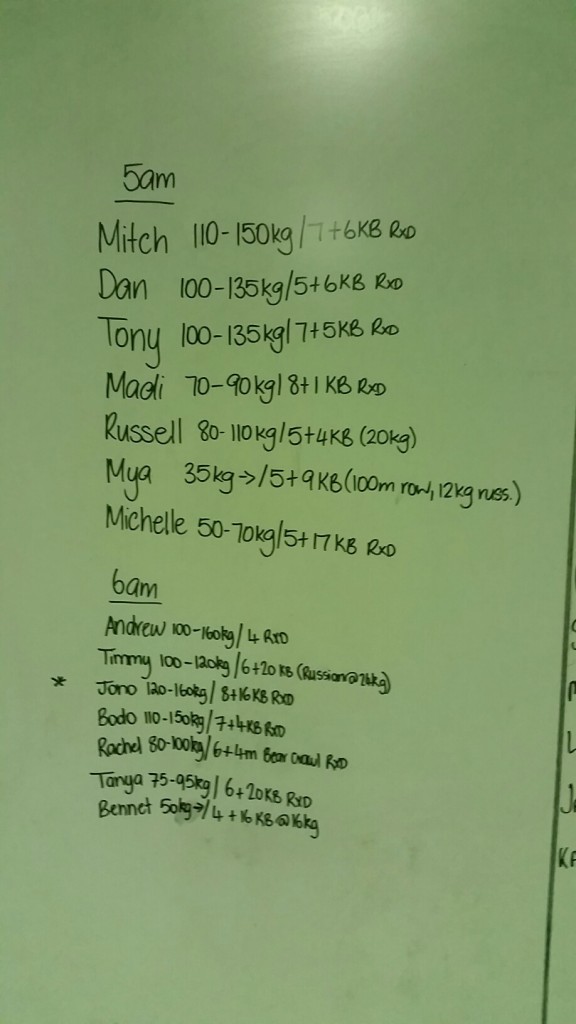 5am
Mitch 110-150kg/7+6KB RxD
Dan 100-135kg/5+6KB RxD
Tony 100-135kg/7+5KB RxD
Madi 70-90kg/8+1KB RxD
Russell 80-110kg/5+4KB (20kg)
Mya 35kg→/5+9KB (100m row, 12kg russ.)
Michelle 50-70kg/5+17KB RxD
6am
Andrew 100-160kg/4 RxD
Timmy 100-120kg/6+20KB (Russian@24kg)
* Jono 120-160kg/8+16KB RxD
Bodo 110-150kg/7+4KB RxD
Rachel 80-100kg/6+4m Bear Crawl RxD
Tanya 75-95kg/6+20KB RxD
Bennet 50kg→/4+16KB@16kg